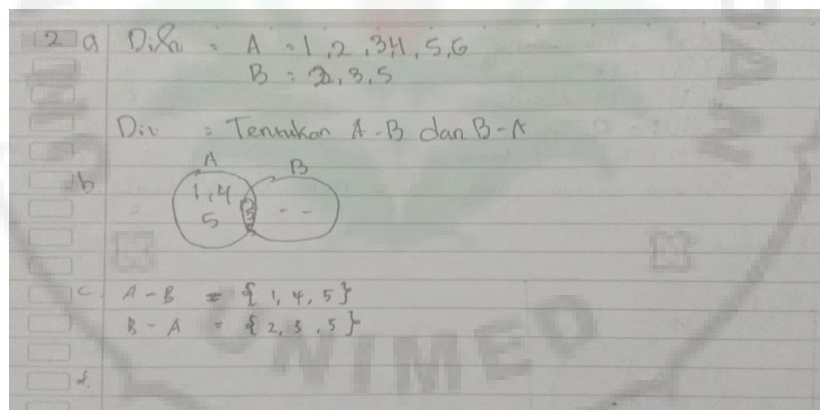 2 a Dik : A = 1, 2, 3, 4, 5, 6
B : 2, 3, 5
Dit : Tentukan A - B dan B - A
A B
b 1, 4
5 - -
c. A - B = { 1, 4, 5 }
B - A = { 2, 3, 5 }
d.
UNIMED